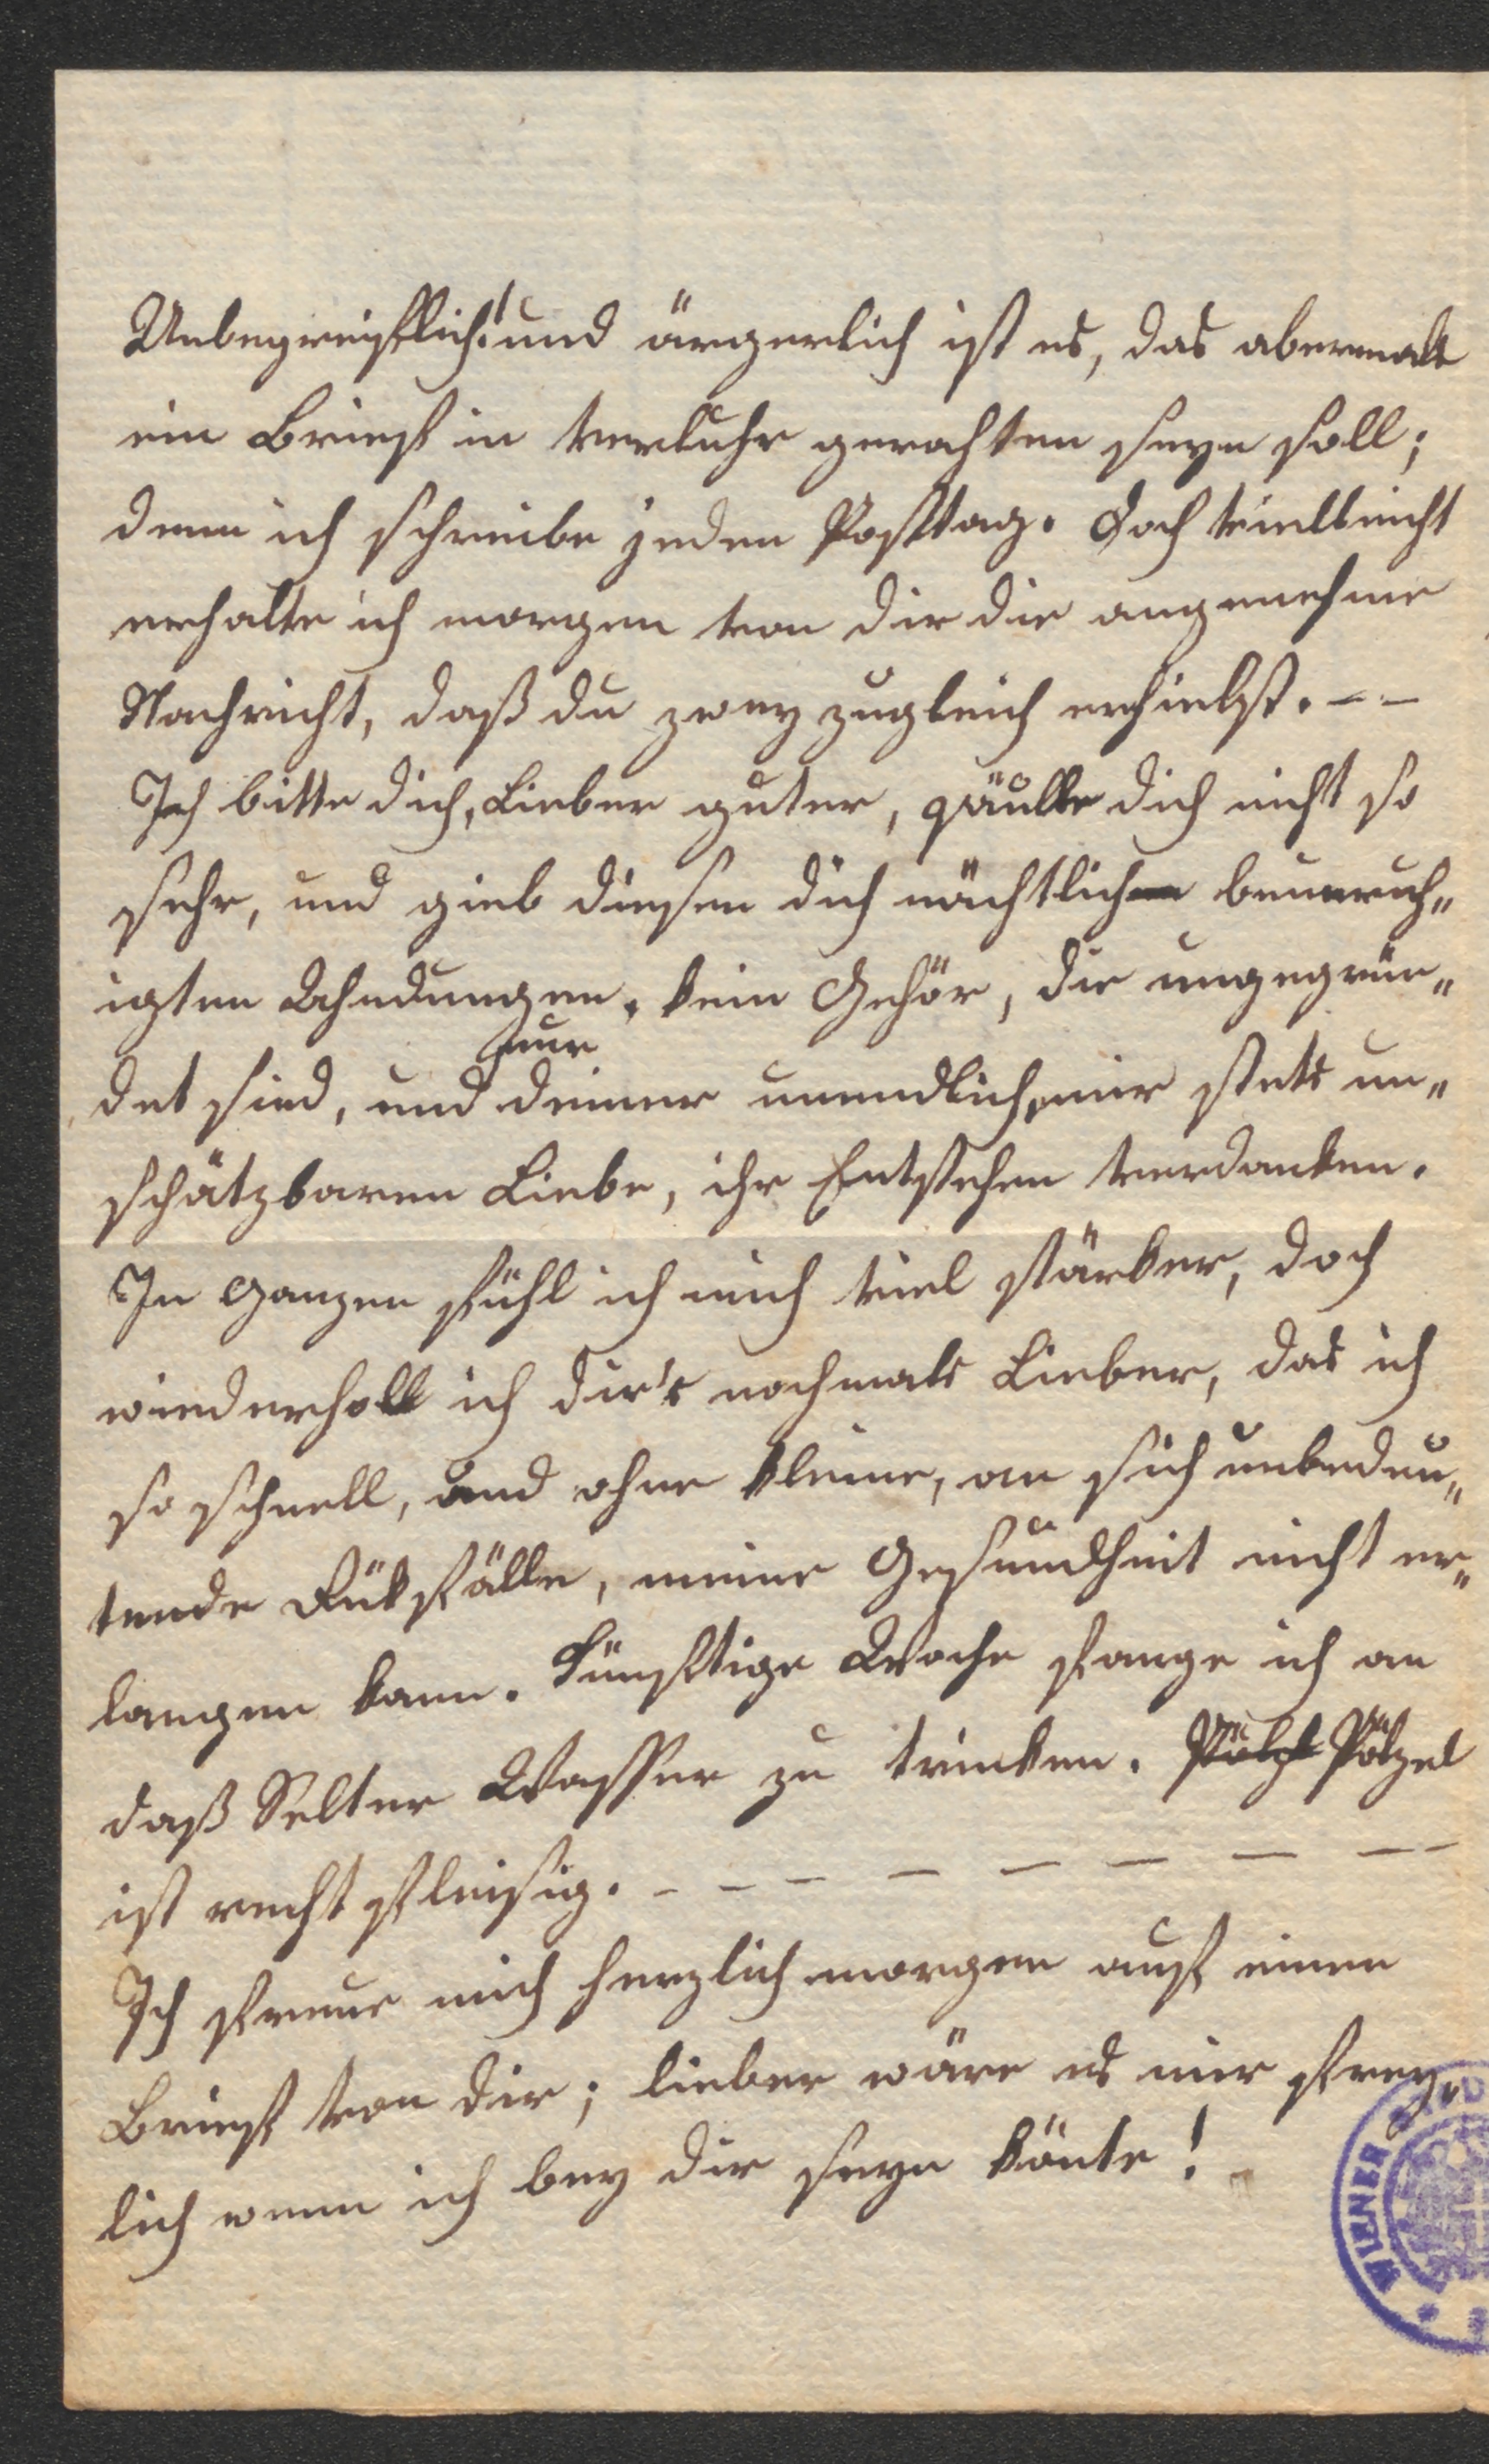 Unbegreiflich! und ärgerlich ist es, das abermals
ein Brief in verluhr gerathen seyn soll;
denn ich schreibe jeden Posttag. Doch vielleicht
erhalte ich morgen von dir die angenehme
Nachricht, daß du zwey zugleich erhielst. --
Ich bitte dich, Lieber guter, quälle dich nicht so
sehr, und gieb diesen dich nächtlich beunruh„
igten Ahndungen, kein Gehör, die ungegrün„
nur
det sind, und deiner unendlich, mir stets un„
schätzbaren Liebe, ihr Entstehen verdanken.
In Ganzen fühl ich mich viel stärker, doch
wiederholl ich dir's nochmals Lieber, das ich
so schnell, und ohne kleine, an sich unbedeu„
tende Rükfälle, meine Gesundheit nicht er„
langen kann. Künftige Woche fange ich an
daß Selter Wasser zu trinken. Pölzl Pölzel
ist recht fleisig. - - - - - - - - -
Ich freue mich herzlich morgen auf einen
Brief von dir; lieber wäre es mir frey„
lich wenn ich bey dir seyn könte!
WIENER